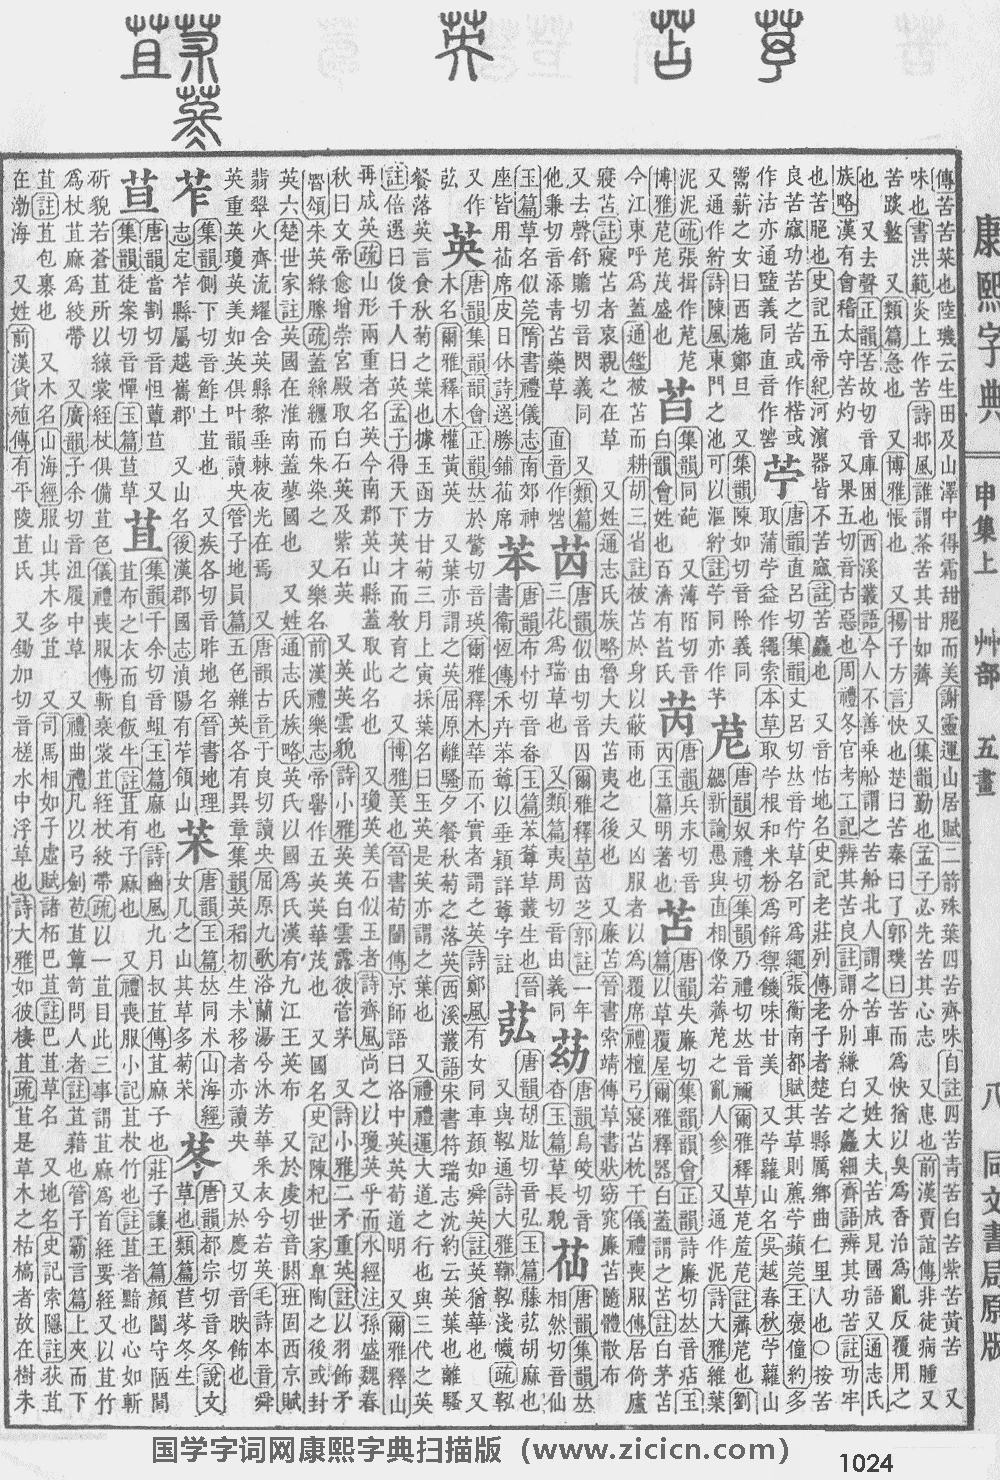 康熙字典 申集上 艸部 五畫 八 同文書局原版
傳苦苦菜也陸璣云生田及山澤中得霜甜脆而美謝靈運山居賦二箭殊葉四苦齊味自註四苦青苦白苦紫苦黃苦 又
味也書洪範炎上作苦詩邶風誰謂荼苦其甘如薺 又集韻勤也孟子必先苦其心志 又患也前漢賈誼傳非徒病腫又
苦蹊盭 又類篇急也 又博雅悵也 又揚子方言快也楚曰苦秦曰了郭璞曰苦而爲快猶以臭爲香治爲亂反覆用之
也 又去聲正韻苦故切音庫困也西溪叢語今人不善乘船謂之苦船北人謂之苦車 又姓大夫苦成見國語又通志氏
族略漢有會稽太守苦灼 又果五切音古惡也周禮冬官考工記辨其苦良註謂分別緣白之麤細齊語辨其功苦註功牢
也苦脆也史記五帝紀河濱器皆不苦窳註苦麤也 又音怙地名史記老莊列傳老子者楚苦縣厲鄉曲仁里人也○按苦
良苦窳功苦之苦或作楛或
作沽亦通盬義同直音作䇢
苧 唐韻直呂切集韻丈呂切𠀤音佇草名可爲繩張衡南都賦其草則藨苧薠莞王褒僮約多
取蒲苧益作繩索本草取苧根和米粉爲餠禦饑味甘美 又苧蘿山名吳越春秋苧蘿山
鬻薪之女曰西施鄭旦 又集韻陳如切音除義同
又通作紵詩陳風東門之池可以漚紵註苧同亦作芧
苨 唐韻奴禮切集韻乃禮切𠀤音禰爾雅釋草苨菧苨註薺苨也劉
勰新論愚與直相像若薺苨之亂人參 又通作泥詩大雅維葉
泥泥疏張揖作苨苨
博雅苨苨茂盛也
苩 集韻同葩 又薄陌切音
白韻會姓也百濟有苩氏
苪 唐韻兵永切音
丙玉篇明著也
苫 唐韻失廉切集韻韻會正韻詩廉切𠀤音痁玉
篇以草覆屋爾雅釋器白蓋謂之苫註白茅苫
今江東呼爲蓋通鑑被苫而耕胡三省註被苫於身以蔽雨也 又凶服者以爲覆席禮檀弓寢苫枕干儀禮喪服傳居倚廬
寢苫註寢苫者哀親之在草 又姓通志氏族略魯大夫苫夷之後也 又廉苫晉書索靖傳草書狀窈窕廉苫隨體散布
又去聲舒贍切音閃義同 又類篇
他兼切音添青苫藥草 直音作
苬 唐韻似由切音囚爾雅釋草苬芝郭註一年
三花爲瑞草也 又類篇夷周切音由義同
苭 唐韻烏皎切音
杳玉篇草長貌
苮 唐韻集韻𠀤
相然切音仙
玉篇草名似莞隋書禮儀志南郊神
座皆用苮席皮日休詩選勝鋪苮席
苯 唐韻布忖切音畚玉篇苯䔿草叢生也晉
書衞恆傳禾卉苯䔿以垂穎詳䔿字註
苰 唐韻胡肱切音弘玉篇藤苰胡麻也
又與鞃通詩大雅鞹鞃淺幭疏鞃
又作
英 唐韻集韻韻會正韻𠀤於驚切音瑛爾雅釋木華而不實者謂之英詩鄭風有女同車顏如舜英註英猶華也 又
木名爾雅釋木權黃英 又葉亦謂之英屈原離騷夕餐秋菊之落英西溪叢語宋書符瑞志沈約云英葉也離騷
餐落英言食秋菊之葉也據玉函方甘菊三月上寅採葉名曰玉英是英亦謂之葉也 又禮禮運大道之行也與三代之英
註倍選曰俊千人曰英孟子得天下英才而教育之 又博雅美也晉書荀闓傳京師語曰洛中英英荀道明 又爾雅釋山
再成英疏山形兩重者名英今南郡英山縣蓋取此名也 又瓊英美石似玉者詩齊風尚之以瓊英乎而水經注孫盛魏春
秋曰文帝愈增崇宮殿取白石英及紫石英 又英英雲貌詩小雅英英白雲露彼菅茅 又詩小雅二矛重英註以羽飾矛
魯頌朱英綠縢疏蓋絲纏而朱染之 又樂名前漢禮樂志帝嚳作五英英華茂也 又國名史記陳杞世家皐陶之後或封
英六楚世家註英國在淮南蓋蓼國也 又姓通志氏族略英氏以國爲氏漢有九江王英布 又於虔切音閼班固西京賦
翡翠火齊流耀含英縣黎垂棘夜光在焉 又唐韻古音于良切讀央屈原九歌浴蘭湯兮沐芳華采衣兮若英毛詩本音舜
英重英瓊英美如英俱叶韻讀央管子地員篇五色雜英各有異章集韻英稻初生未移者亦讀央 又於慶切音映飾也
苲 集韻側下切音鮓土苴也 又疾各切音昨地名晉書地理
志定苲縣屬越巂郡 又山名後漢郡國志滇陽有苲領山
苿 唐韻玉篇𠀤同朮山海經
女几之山其草多菊苿
苳 唐韻都宗切音冬說文
草也類篇苣苳冬生
唐韻當割切音怛 又
集韻徒案切音憚玉篇 草
苴 集韻千余切音蛆玉篇麻也詩豳風九月叔苴傳苴麻子也莊子讓王篇顏闔守陋閭
苴布之衣而自飯牛註苴有子麻也 又禮喪服小記苴杖竹也註苴者黯也心如斬
斫貌若蒼苴所以縗裳絰杖俱備苴色儀禮喪服傳斬衰裳苴絰杖絞帶疏以一苴目此三事謂苴麻爲首絰要絰又以苴竹
爲杖苴麻爲絞帶 又廣韻子余切音沮履中草 又禮曲禮凡以弓劍苞苴簞笥問人者註苴藉也管子霸言篇上夾而下
苴註苴包裹也 又木名山海經服山其木多苴 又司馬相如子虛賦諸柘巴苴註巴苴草名 又地名史記索隱註荻苴
在渤海 又姓前漢貨殖傳有平陵苴氏 又鋤加切音槎水中浮草也詩大雅如彼棲苴疏苴是草木之枯槁者故在樹朱
国学字词网康熙字典扫描版（www.zicicn.com）
1024